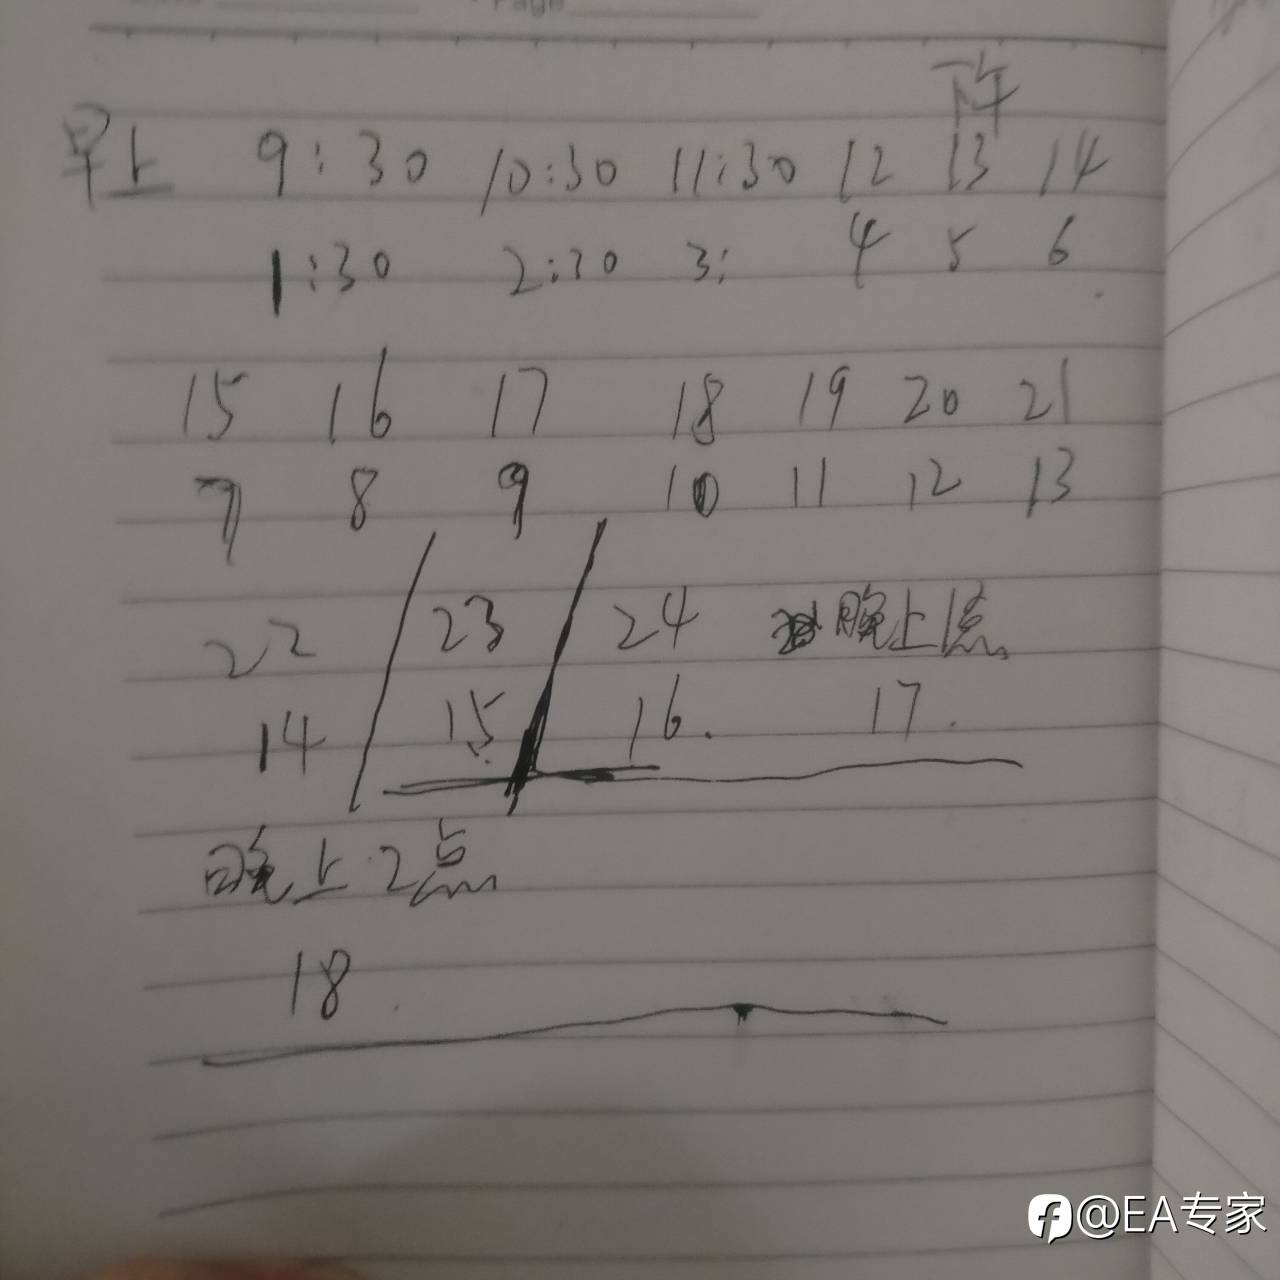 Page
下午
早上 9:30 10:30 11:30 12 13 14
1:30 2:30 3: 4 5 6
15 16 17 18 19 20 21
7 8 9 10 11 12 13
22 23 24 晚上1点
14 15 16. 17.
晚上2点
18
@EA专家